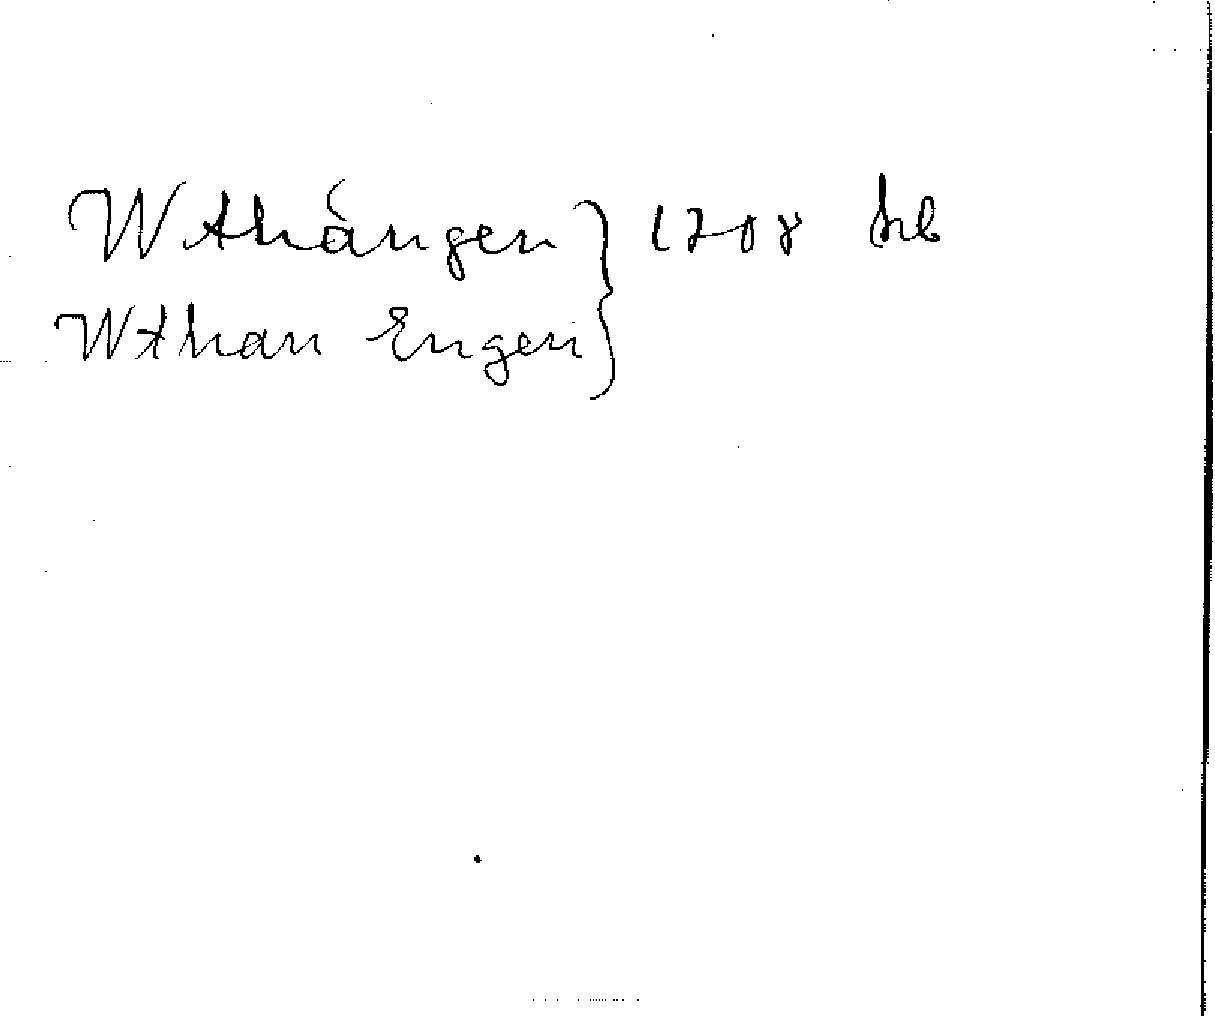 Wthángen } 1708 hl
Wthan Engen